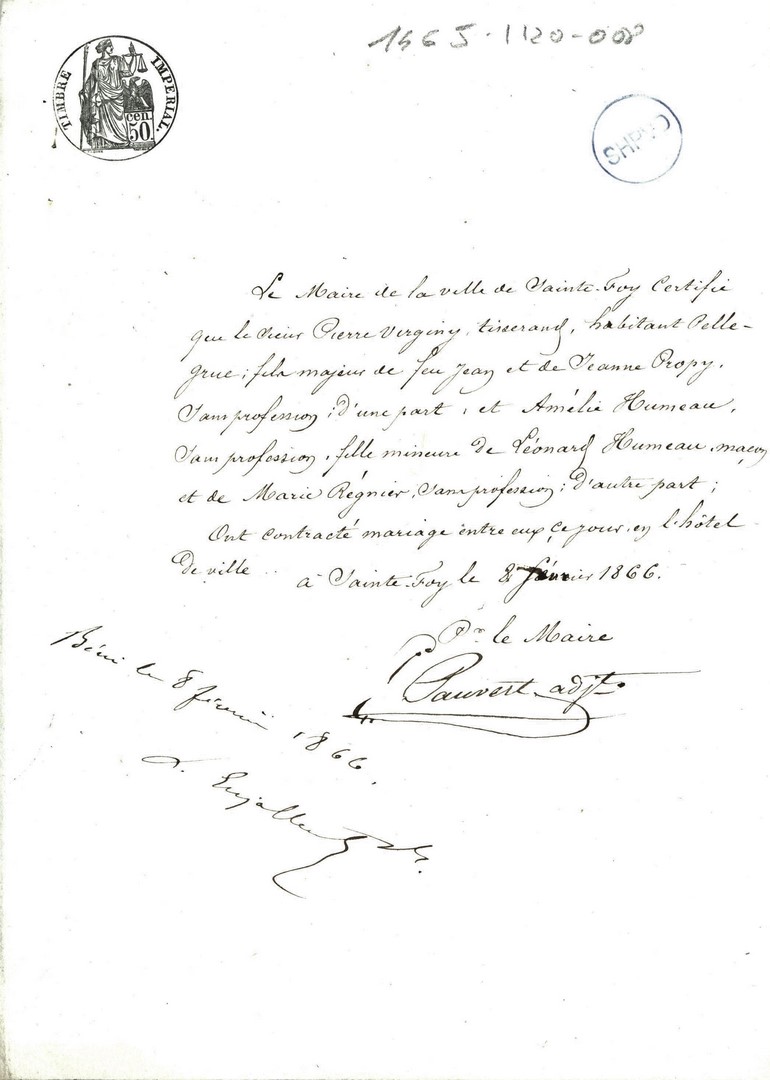 1465-1120-008
TIMBRE IMPERIAL.
cen.
50.
SHPVD
Le Maire de la ville de Sainte-Foy Certifie
que le sieur Pierre Virginy, tisserand, habitant Pelle-
grue; fils majeur de feu Jean et de Jeanne Propy,
sans profession; d'une part, et Amélie Humeau,
sans profession, fille mineure de Léonard Humeau, maçon
et de Marie Régnier, sans profession; d'autre part;
Ont contracté mariage entre eux, ce jour, en l'hôtel
de ville..
à Sainte-Foy le 8 février 1866.
Pr le Maire
Pauvert adjt
Béni le 8 février 1866.